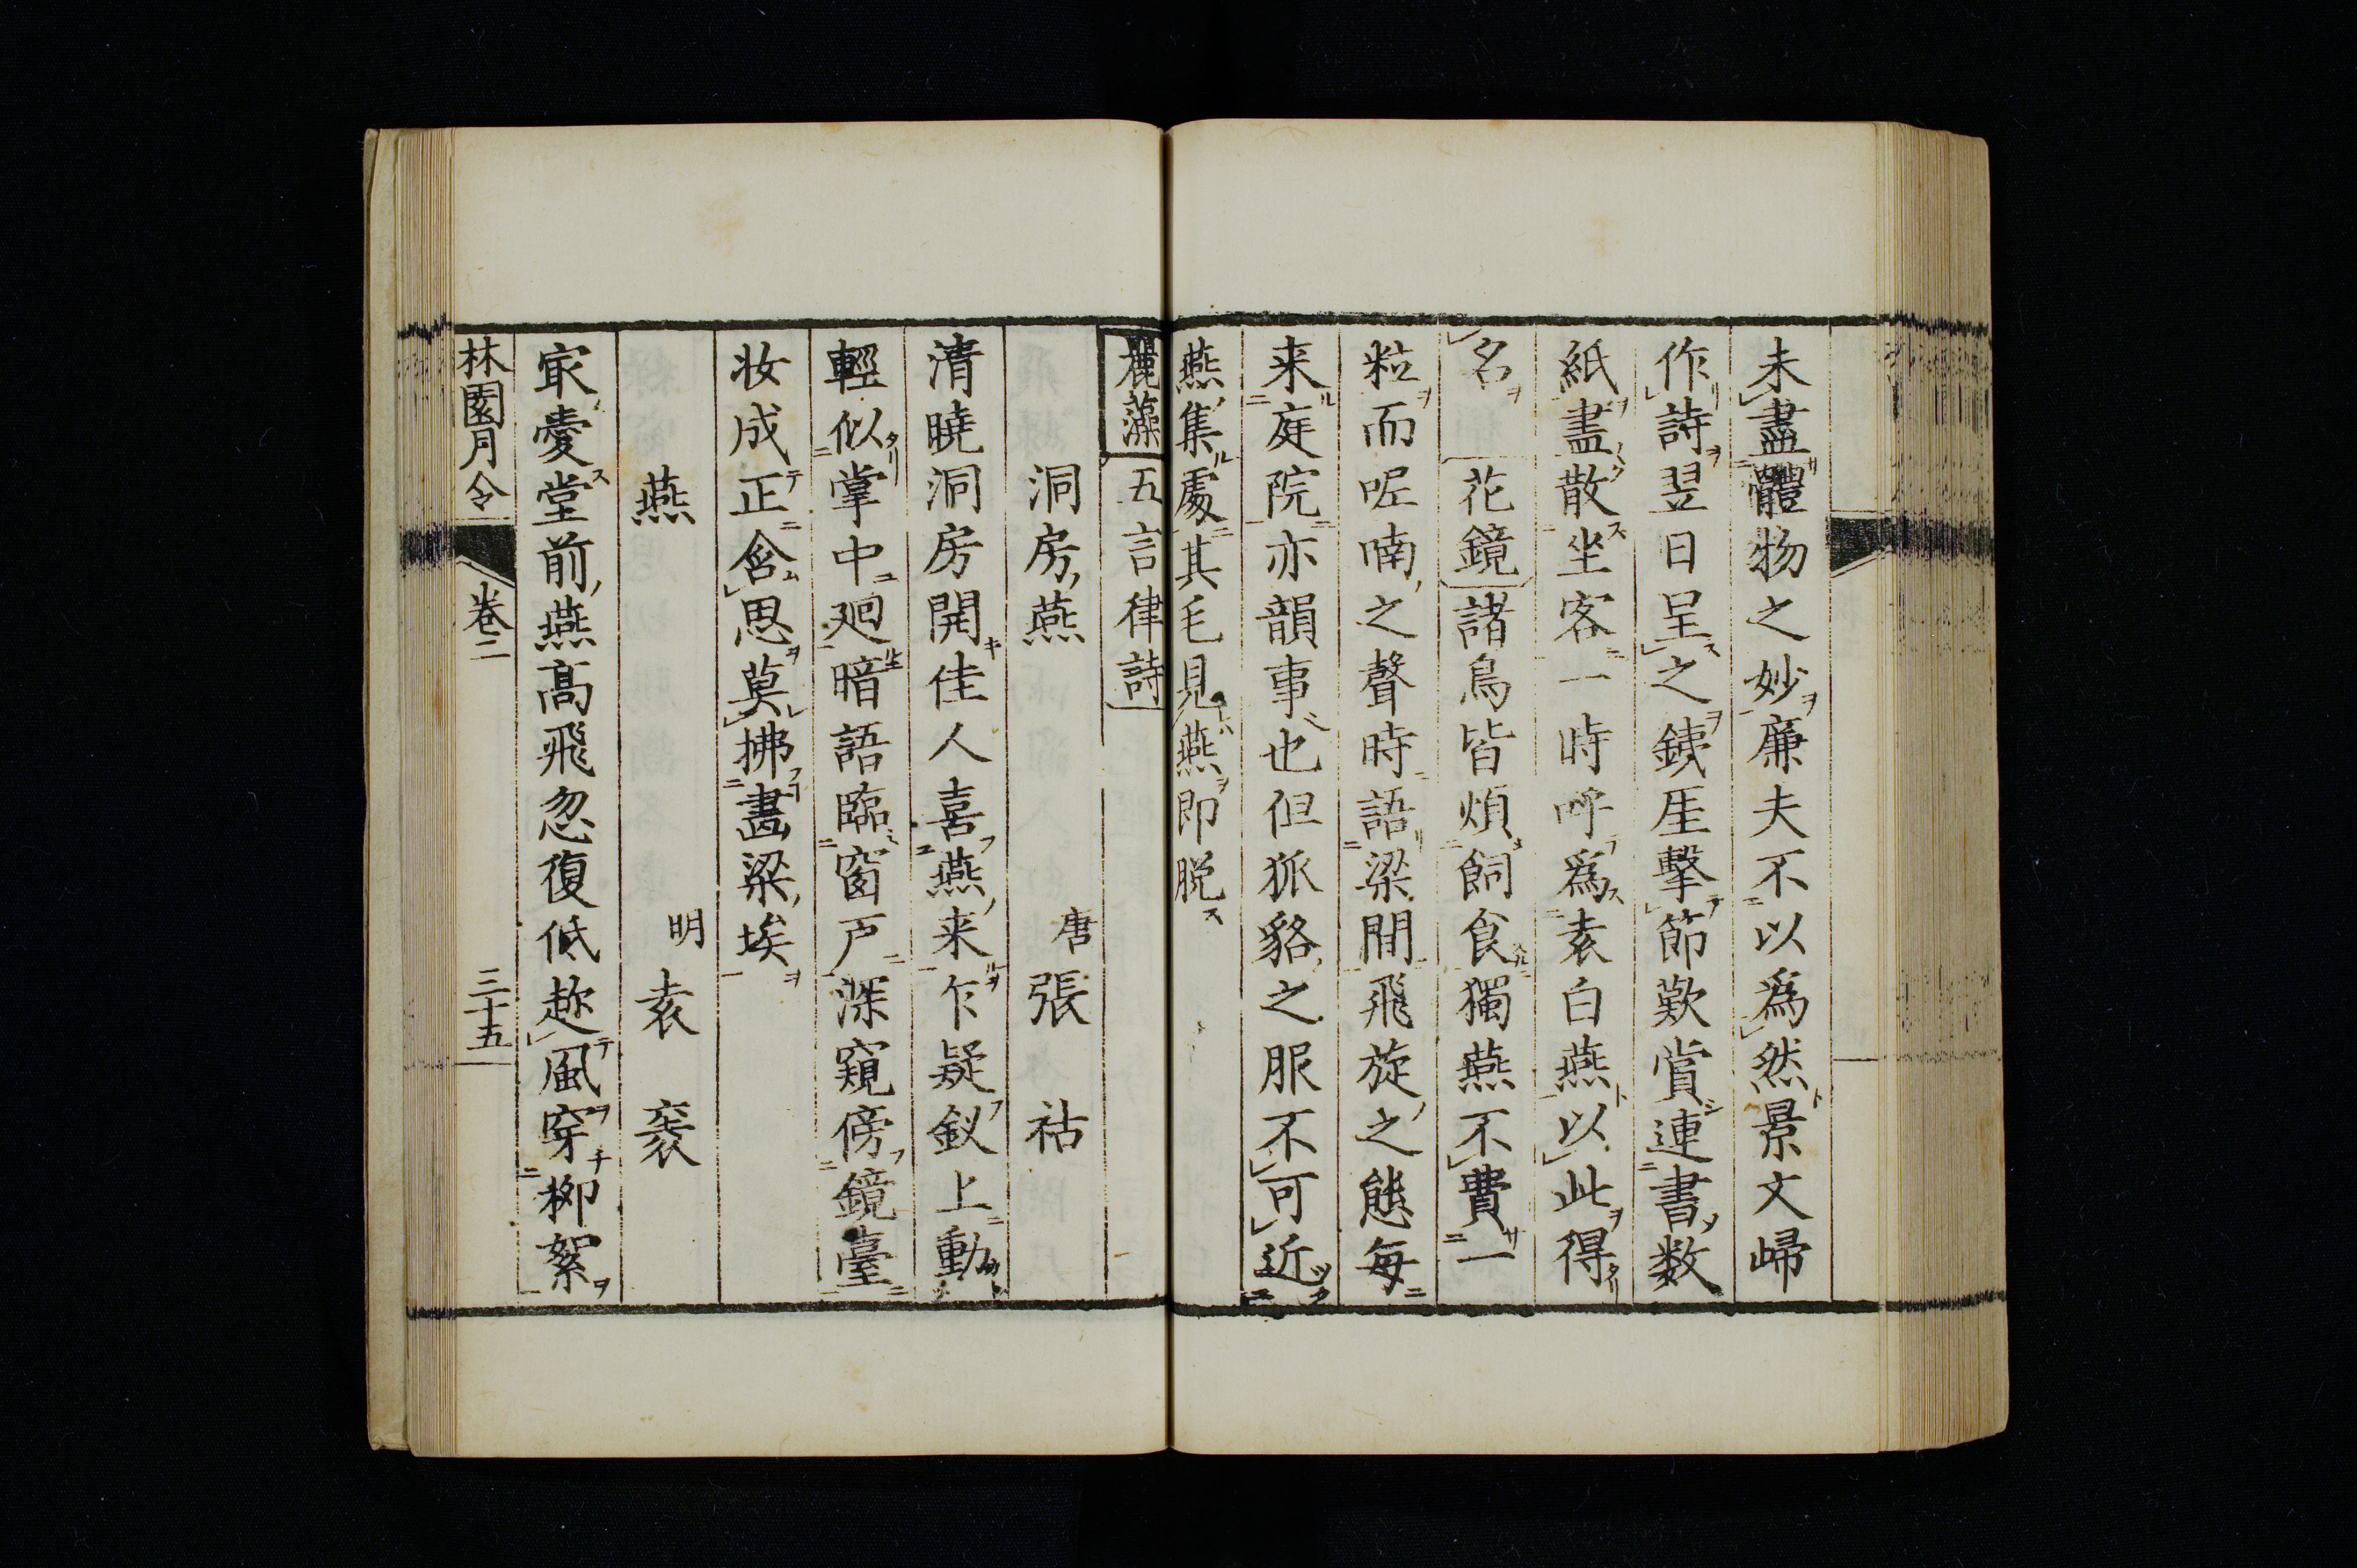 未盡體物之妙廉夫不以爲然景文歸
作詩翌日呈之銕厓擊節歎賞連書数
紙盡散坐客一時呼爲袁白燕以此得
名 花鏡 諸鳥皆煩飼食獨燕不費一
粒而呢喃之聲時語梁間飛旋之態毎
来庭院亦韻事也但狐貉之服不可近
燕集處其毛見燕即脱
麗藻 五言律詩
洞房燕 唐 張祜
清曉洞房開佳人喜燕来乍疑釵上動
輕似掌中廻暗語臨窗戸深窺傍鏡臺
妝成正含思莫拂畵梁埃
燕 明 袁袠
㝡愛堂前燕高飛忽復低趂風穿柳絮
林園月令 卷二 三十五